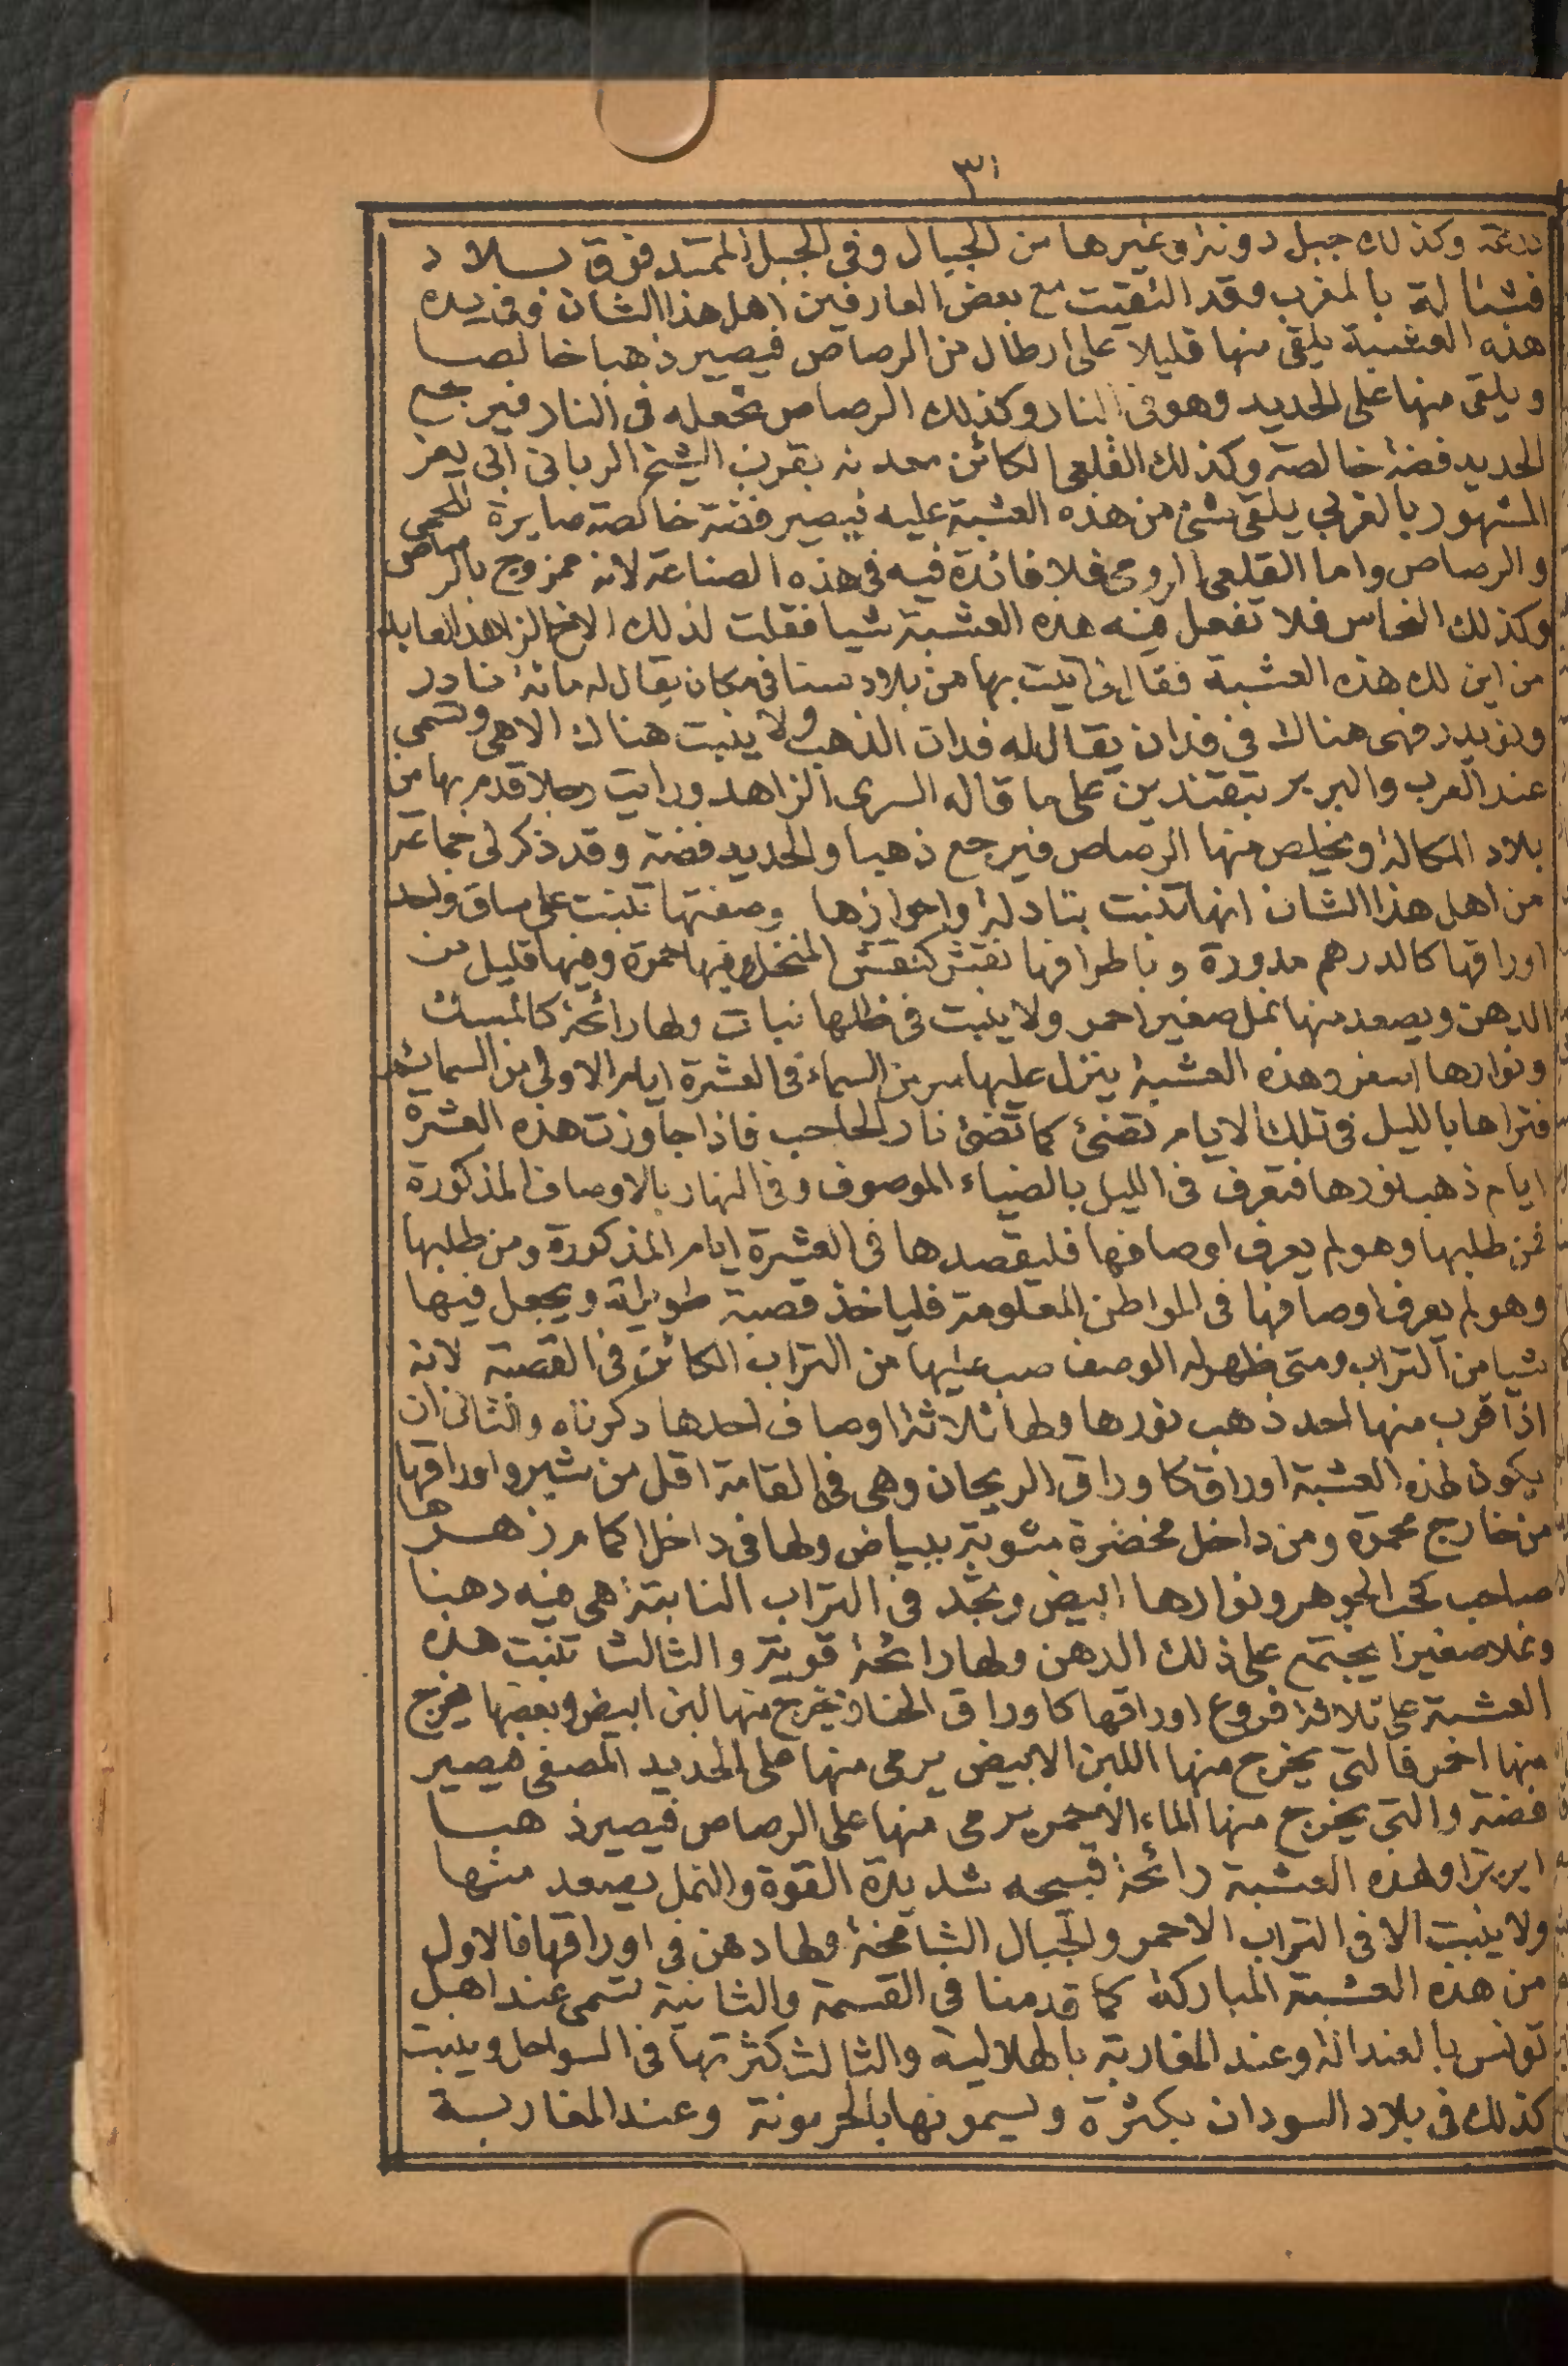 ٣١
درعة وكذلك جبل دونه وغيرها من الجبال وفى الجبل الممتد فوق بلاد
فشتالة بالمغرب وقد التقيت مع بعض العارفين اهل هذا الشان وفى يده
هذه العشبة يلقى منها قليلا على ارطال من الرصاص فيصير ذهبا خالصا
ويلقى منها على الحديد وهو فى النار وكذلك الرصاص تجعله فى النار فيرجع
الحديد فضة خالصة وكذلك القلعى الكائن معدنه بقرب الشيخ الربانى ابى يعز
المشهور بالغربى يلقى شئ من هذه العشبة عليه فيصير فضة خالصة صابرة للحمى
والرصاص واما القلعى الرومى فلا فائدة فيه فى هذه الصناعة لانه ممزوج بالرصاص
وكذلك النحاس فلا تفعل فيه هذه العشبة شيا فقلت لذلك الاخ الزاهد العابد
من اين لك هذه العشبة فقال انى اتيت بها من بلادستنا فى مكان يقال له مائة
فهى هناك فى فدان يقال له فدان الذهب ولا ينبت هناك الا هى وتسمى
عند العرب والبربر على ما قاله السرى الزاهد ورايت رجلا قدم بها من
بلاد المكالة ويخلص منها الرصاص فيرجع ذهبا والحديد فضة وقد ذكر لى جماعة
من اهل هذا الشان انها تنبت بتادلة واحوازها وصفتها تنبت على ساق واحد
اوراقها كالدرهم مدورة وباطرافها نقش كنقش المنخل وفيها حمرة وفيها قليل من
الدهن ويصعد منها نمل صغير احمر ولا ينبت فى ظلها نبات ولها رائحة كالمسك
ونوارها اصفر وهذه العشبة ينزل عليها سر من السماء فى العشرة ايام الاولى من السمائم
فتراها بالليل فى تلك الايام تضئ كما تضئ نار الحاحب فاذا جاوزت هذه العشرة
ايام ذهب نورها فتعرف فى الليل بالضياء الموصوف وفى النهار بالاوصاف المذكورة
فمن طلبها وهو لم يعرف اوصافها فليقصدها فى العشرة ايام المذكورة ومن طلبها
وهو لم يعرف اوصافها فى المواطن المعلومة فلياخذ قصبة طويلة ويجعل فيها
شيا من التراب ومتى ظهر له الوصف صب عليها من التراب الكائن فى القصبة لانه
اذا قرب منها احد ذهب نورها ولها ثلاثة اوصاف احدها ذكرناه والثانى ان
يكون لهذه العشبة اوراق كاوراق الريحان وهى فى القامة اقل من شبر واوراقها
من خارج محمرة ومن داخل مخضرة مشوبة ببياض ولها فى داخل اكمام زهرها
صاحب كحب الجوهر ونوارها ابيض وتجد فى التراب النابتة هى فيه دهنا
ونملا صغيرا يجتمع على ذلك الدهن ولها رائحة قوية والثالث تنبت هذه
العشبة على ثلاثة فروع اوراقها كاوراق الحنا يخرج منها لبن ابيض وبعضها يخرج
منها احمر فالتى يخرج منها اللبن الابيض يرمى منها على الحديد المصفى فيصير
فضة والتى يخرج منها الماء الاحمر يرمى منها على الرصاص فيصير ذهبا
ابريزا ولهذه العشبة رائحة قبيحه شديدة القوة والنمل يصعد منها
ولا ينبت الا فى التراب الاحمر والجبال الشامخة ولها دهن فى اوراقها فالاول
من هذه العشبة المباركة كما قدمنا فى القسمة والثانية تسمى عند اهل
تونس وعند المغاربة بالهلالية والثالث كثرتها فى السواحل وينبت
كذلك فى بلاد السودان بكثرة ويسمونها وعند المغاربة